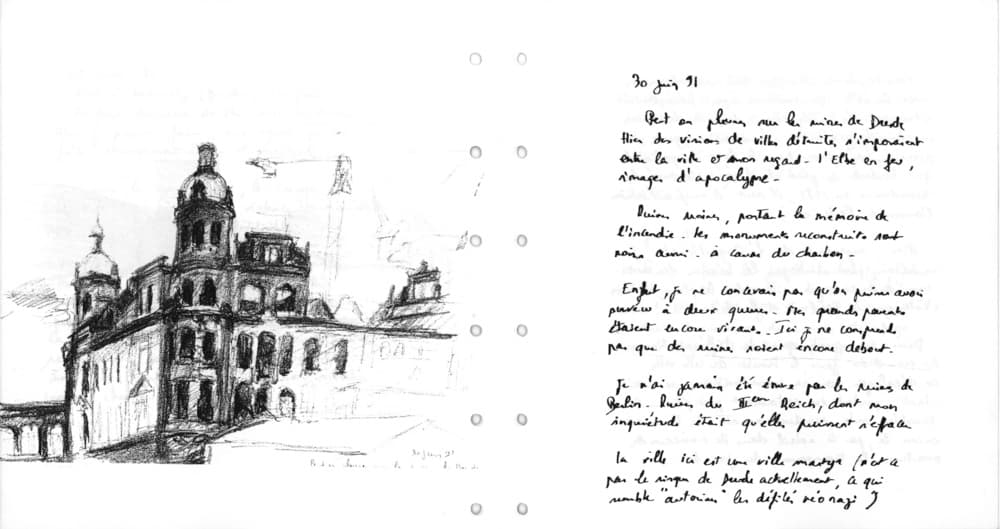 30 juin 91
30 juin 91
Peut on pleurer sur les ruines de Dresde
Hier des visions de villes détruites s'imposaient
entre la ville et mon regard - l'Elbe en feu,
images d'apocalypse -
Ruines noires, portant la mémoire de
l'incendie. Les monuments reconstruits sont
noirs aussi - à cause du charbon -
Enfant, je ne concevais pas qu'on puisse avoir
survécu à deux guerres - Mes grands parents
étaient encore vivants. Ici je ne comprends
pas que des ruines soient encore debout.
Je n'ai jamais été émue par les ruines de
Berlin - Ruines du IIIème Reich, dont mon
inquiétude était qu'elles puissent s'effacer
La ville ici est une ville martyre (n'est ce
pas le risque de Dresde actuellement, ce qui
semble "autoriser" les défilés néo nazi ?)